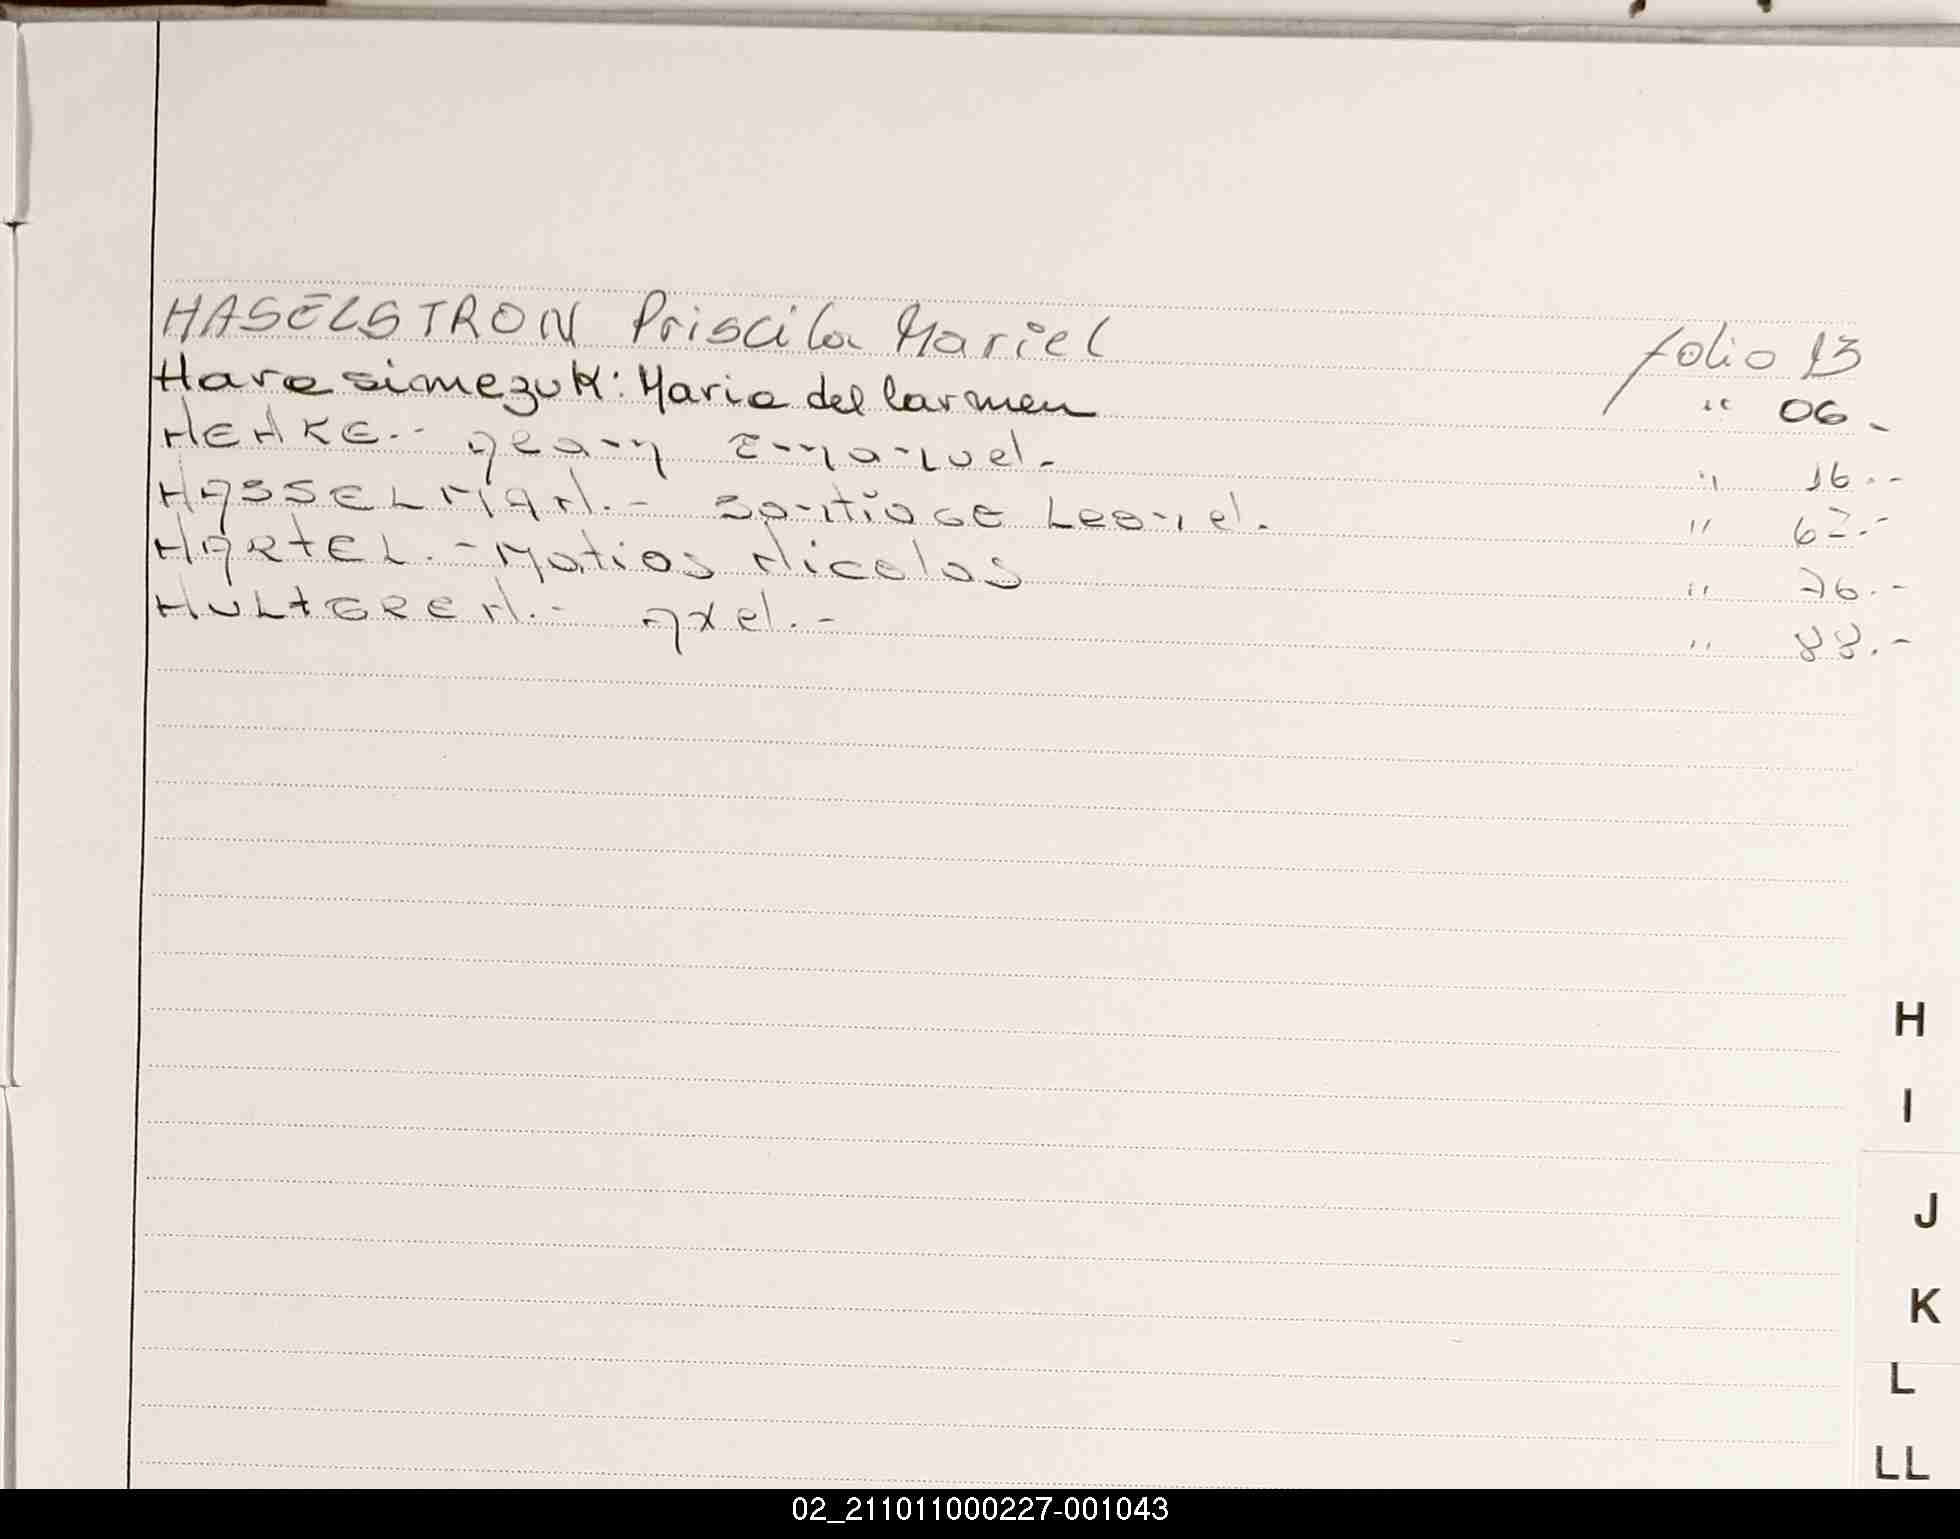 HASELSTRON Priscila Mariel folio 13
Harasimezuk: Maria del Carmen " 06 -
HENKE.- Emanuel.- " 16.-
HASSELMAN.- Santiago Leonel.- " 67.-
HARTEL.- Matias Nicolas " 76.-
HULTGREN.- Axel.- " 88.-
H
I
J
K
L
LL
02_211011000227-001043